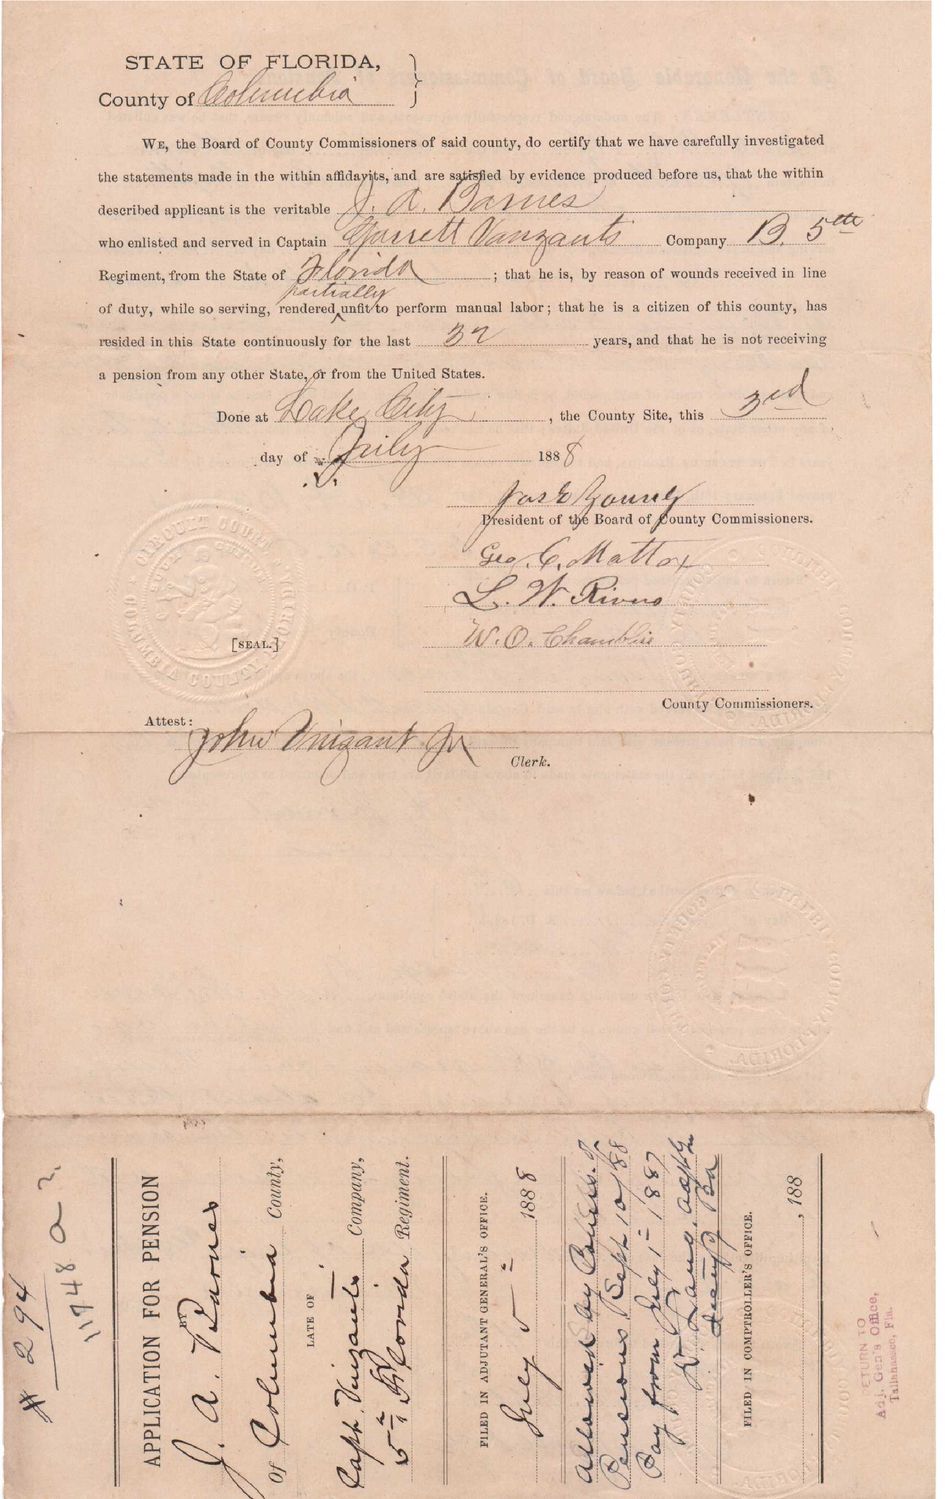 STATE OF FLORIDA,
County of Columbia
WE, the Board of County Commissioners of said county, do certify that we have carefully investigated
the statements made in the within affidavits, and are satisfied by evidence produced before us, that the within
described applicant is the veritable J. A. Barnes
who enlisted and served in Captain Garrett Vanzants Company B. 5th
Regiment, from the State of Florida ; that he is, by reason of wounds received in line
partially
of duty, while so serving, rendered ^ unfit to perform manual labor; that he is a citizen of this county, has
resided in this State continuously for the last 32 years, and that he is not receiving
a pension from any other State, or from the United States.
Done at Lake City, the County Site, this 3rd
day of July 1888
Jas E Young
President of the Board of County Commissioners.
Geo. C. Mattox
L. W. Rivers
W. O. Chamblie
[SEAL.]
County Commissioners.
Attest:
John Vinzant Jr
Clerk.
CIRCUIT COURT
COLUMBIA COUNTY FLORIDA
# 294
11748
APPLICATION FOR PENSION
BY
J. A. Barnes
Of Columbia County,
LATE OF
Capt. Vinzants Company,
5 Florida Regiment.
FILED IN ADJUTANT GENERAL'S OFFICE.
July 5 1888
Allowed by
Pensions Sept 10/88
Pay from July 1 = 1887
D. Lang,
FILED IN COMPTROLLER'S OFFICE.
, 188
RETURN TO
Adj. Gen's Office,
Tallahassee, Fla.